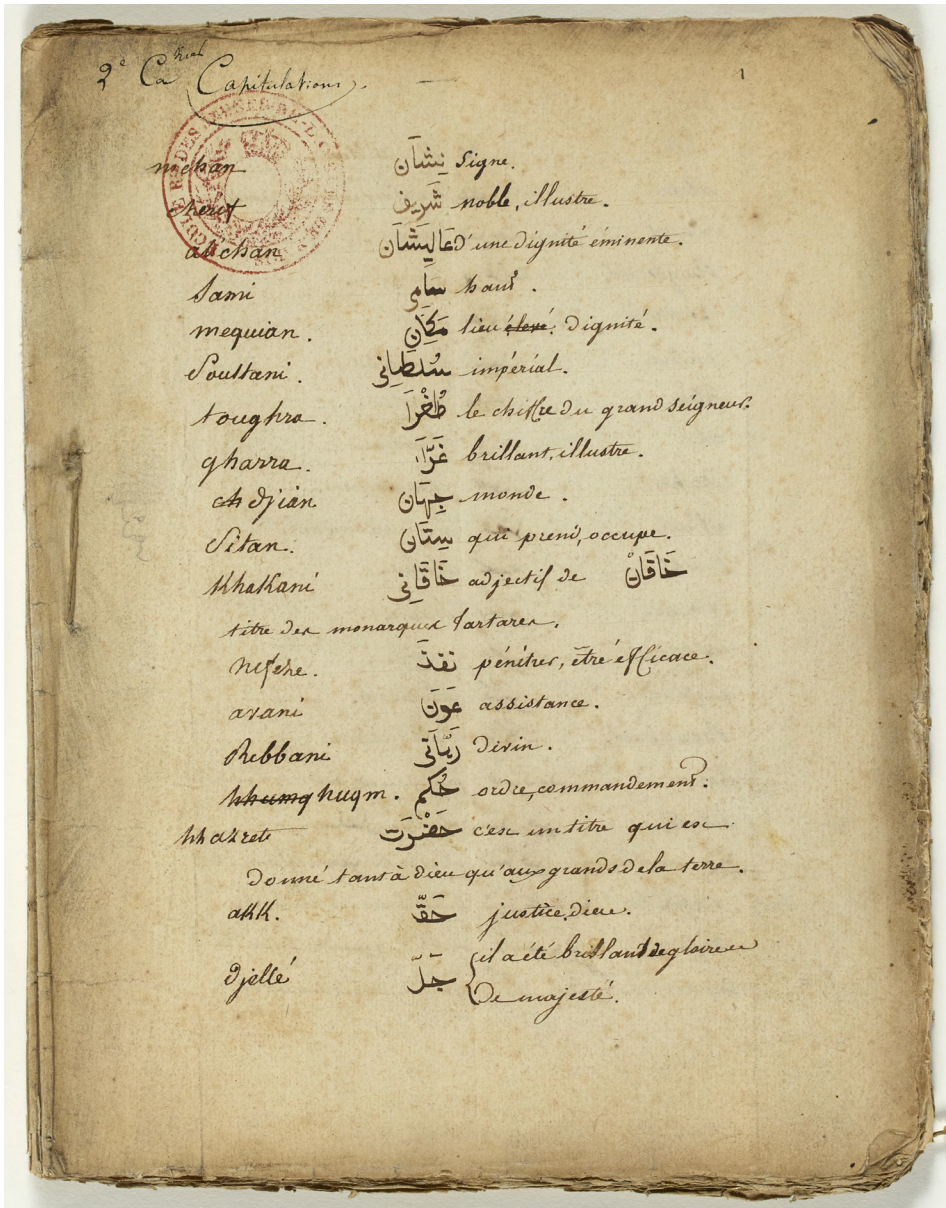 2e Ca Capitulations.
1
nichan نِشَان signe.
cherif شَرِيف noble, illustre.
alichan عَالِيشَان d'une dignité éminente.
Sami سَامِى haut.
mequian. مَكَان lieu élevé. dignité.
Soultani. سُلطَانِى impérial.
toughra. طُغْرَا le chiffre du grand seigneur.
gharra. غَرَّاء brillant, illustre.
ch djian جِهَان monde.
Sitan. سِتَان qui prend, occupe.
Khakani خَاقَانِى adjectif de خَاقَانْ
titre des monarques tartares.
Nefehe. نفذَ pénétrer, être efficace.
avani عَوَن assistance.
Rebbani رَبَّانِى divin.
hhumq huqm. حُكِم ordre, commandement.
hhazrete حَضْرَت c'est un titre qui est
donné tant à dieu qu'aux grands de la terre.
akk. حَقّ justice, dieu.
djellé جَلّ il a été brillant de gloire et
de majesté.